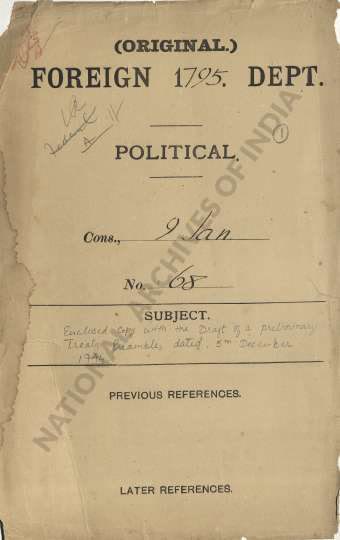 (ORIGINAL.)
FOREIGN 1795. DEPT.
A
1
POLITICAL.
Cons., 9 Jan
No. 68
SUBJECT.
Enclosed Copy with the Draft of a preliminary
Treaty Preamble, dated, 5th December
PREVIOUS REFERENCES.
LATER REFERENCES.
NATIONAL ARCHIVES OF INDIA